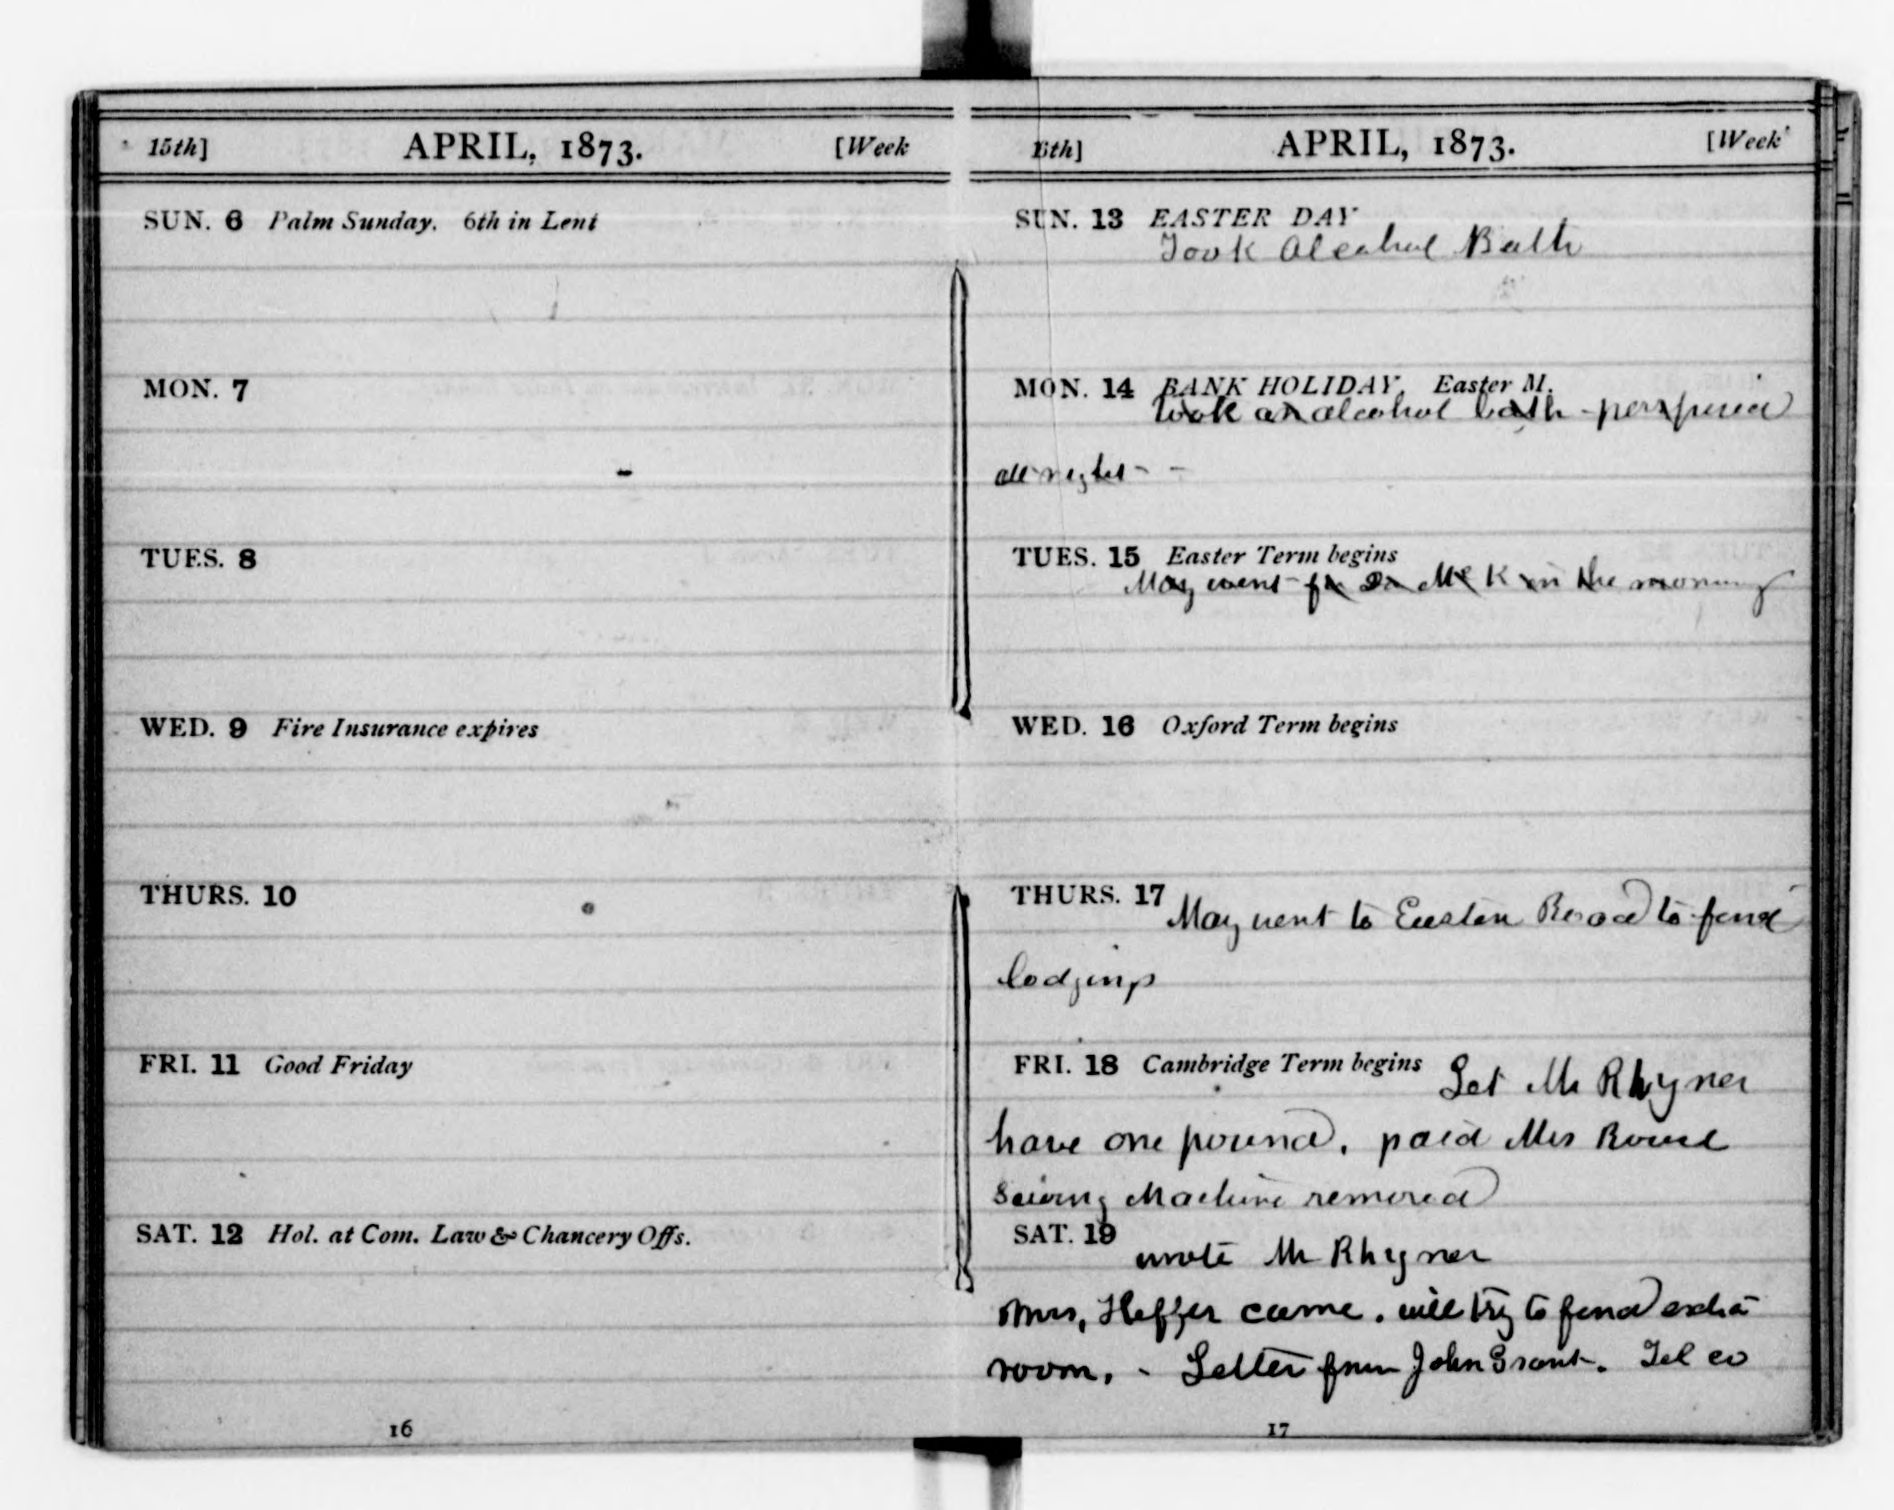 15th] APRIL, 1873. [Week
SUN. 6 Palm Sunday. 6th in Lent
MON. 7
TUES. 8
WED. 9 Fire Insurance expires
THURS. 10
FRI. 11 Good Friday
SAT. 12 Hol. at Com. Law & Chancery Offs.
16
16th] APRIL, 1873. [Week
SUN. 13 EASTER DAY
Took Alcohol Bath
MON. 14 BANK HOLIDAY. Easter M.
took an alcohol bath - perspired
all night -
TUES. 15 Easter Term begins
May went for Dr McK in the morning
WED. 16 Oxford Term begins
THURS. 17
May went to Euston Road to find
lodgings
FRI. 18 Cambridge Term begins Let Mr Rhyner
have one pound. paid Mrs
Sewing Machine removed
SAT. 19
wrote Mr Rhyner
Mrs, Heffer came. will try to find extra
room. - Letter from John Grant. Tel co
17